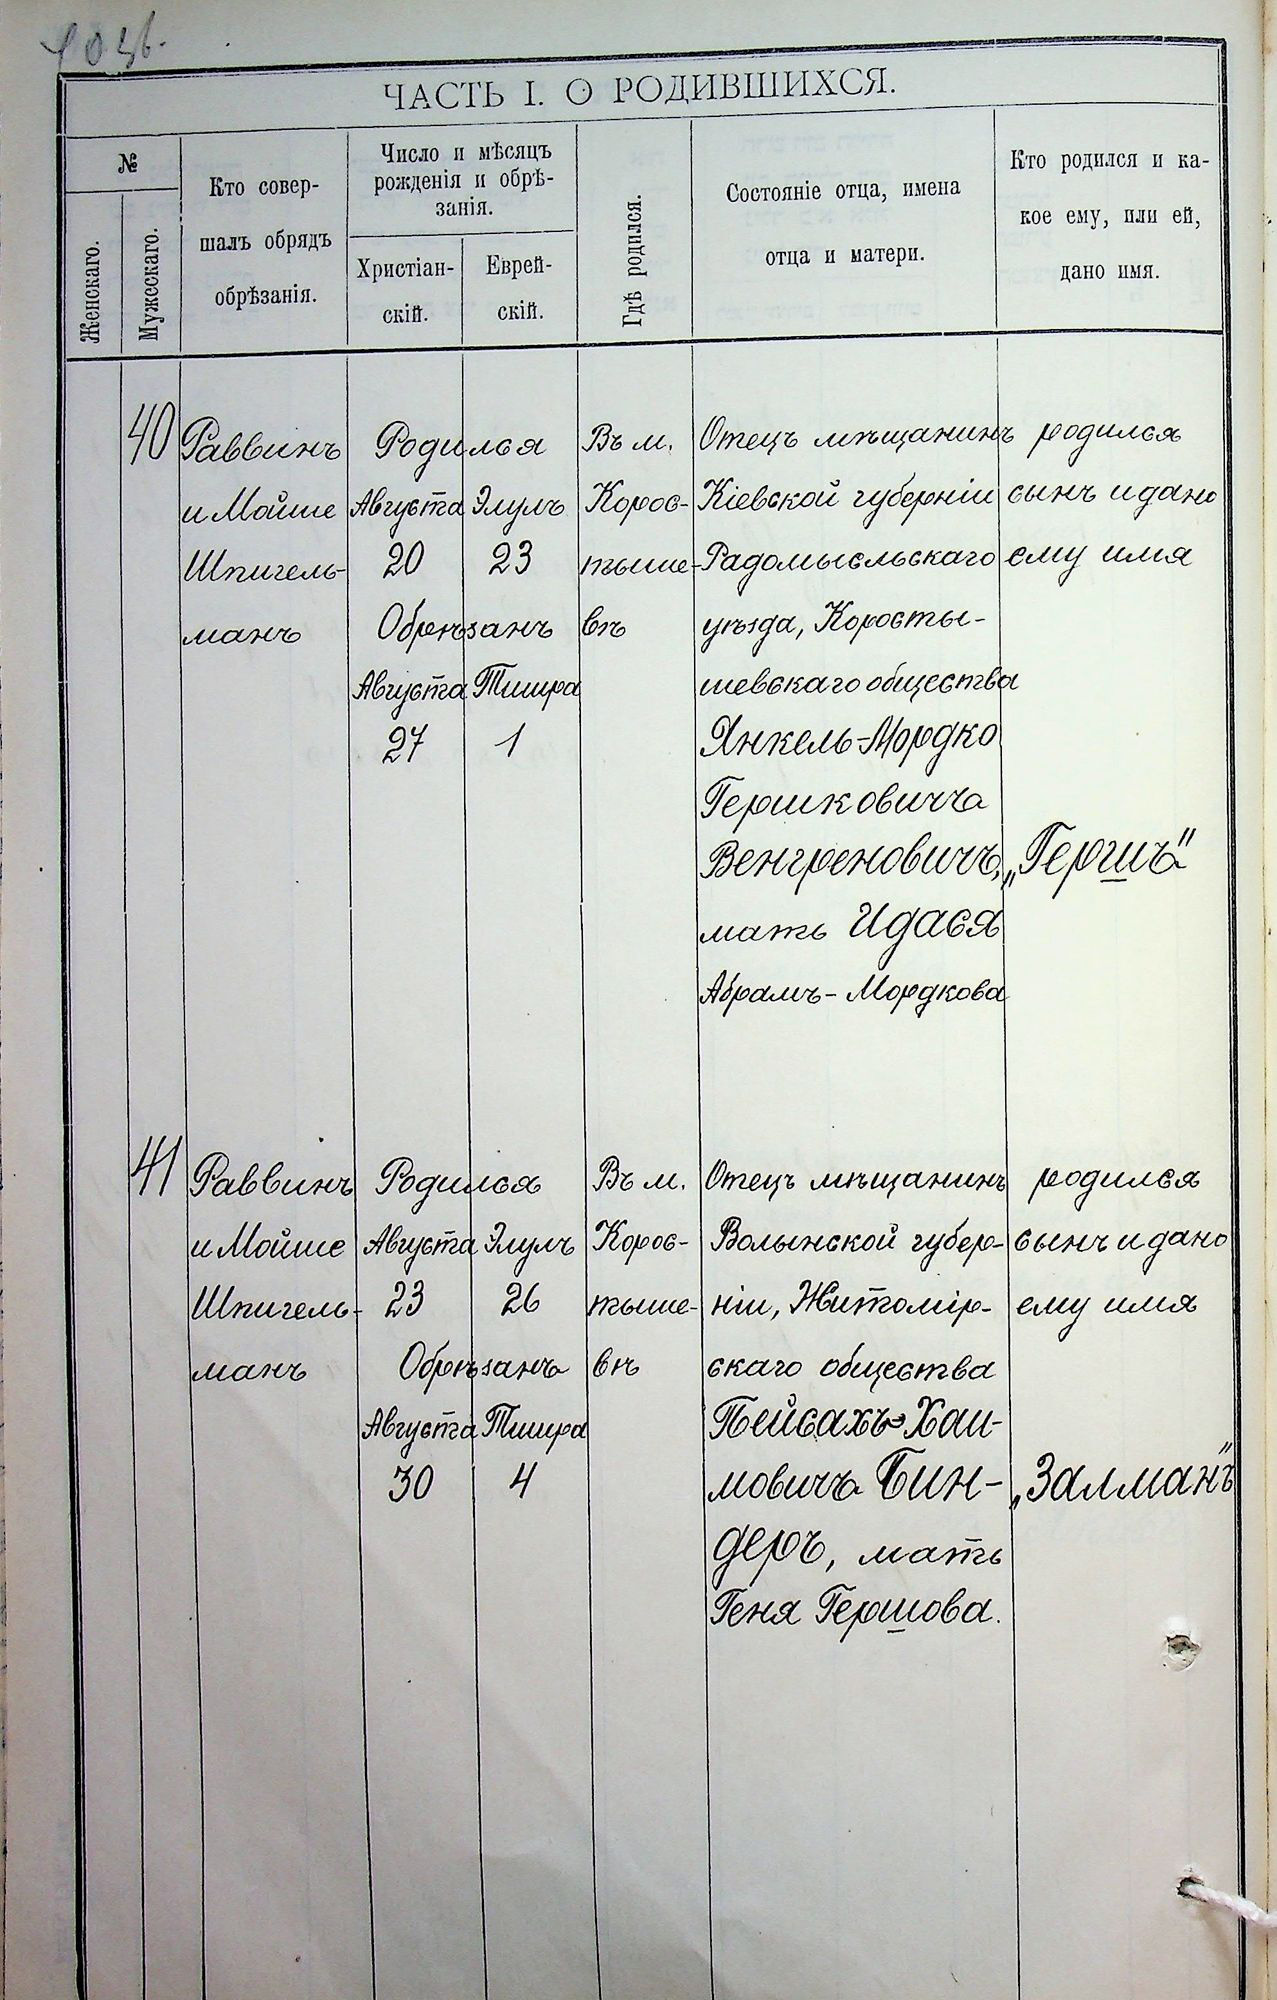 ЧАСТЬ I. О РОДИВШИХСЯ.
№
Женскаго.
Мужескаго.
Кто совер-
шалъ обрядъ
обрѣзанія.
Число и мѣсяцъ
рожденія и обрѣ-
занія.
Христіан-
скій.
Еврей-
скій.
Гдѣ родился.
Состояніе отца, имена
отца и матери.
Кто родился и ка-
кое ему, или ей,
дано имя.
40
Раввинъ
и Мойше
Шпигель-
манъ
Родился
Августа Элулъ
20 23
Обрѣзанъ
Августа Тишра
27 1
Въ м.
Корос-
тыше-
вѣ
Отецъ мѣщанинъ
Кіевской губерніи
Радомысльскаго
уѣзда, Коросты-
шевскаго общества
Янкель-Мордко
Гершковичъ
Венгреновичъ,
мать Идася
Абрамъ-Мордкова
родился
сынъ и дано
ему имя
„Гершъ"
41
Раввинъ
и Мойше
Шпигель-
манъ
Родился
Августа Элулъ
23 26
Обрѣзанъ
Августа Тишра
30 4
Въ м.
Корос-
тыше-
вѣ
Отецъ мѣщанинъ
Волынской губер-
ніи, Житомір-
скаго общества
Пейсахъ Хаи-
мовичъ Бин-
деръ, мать
Геня Гершова.
родился
сынъ и дано
ему имя
„Залманъ"